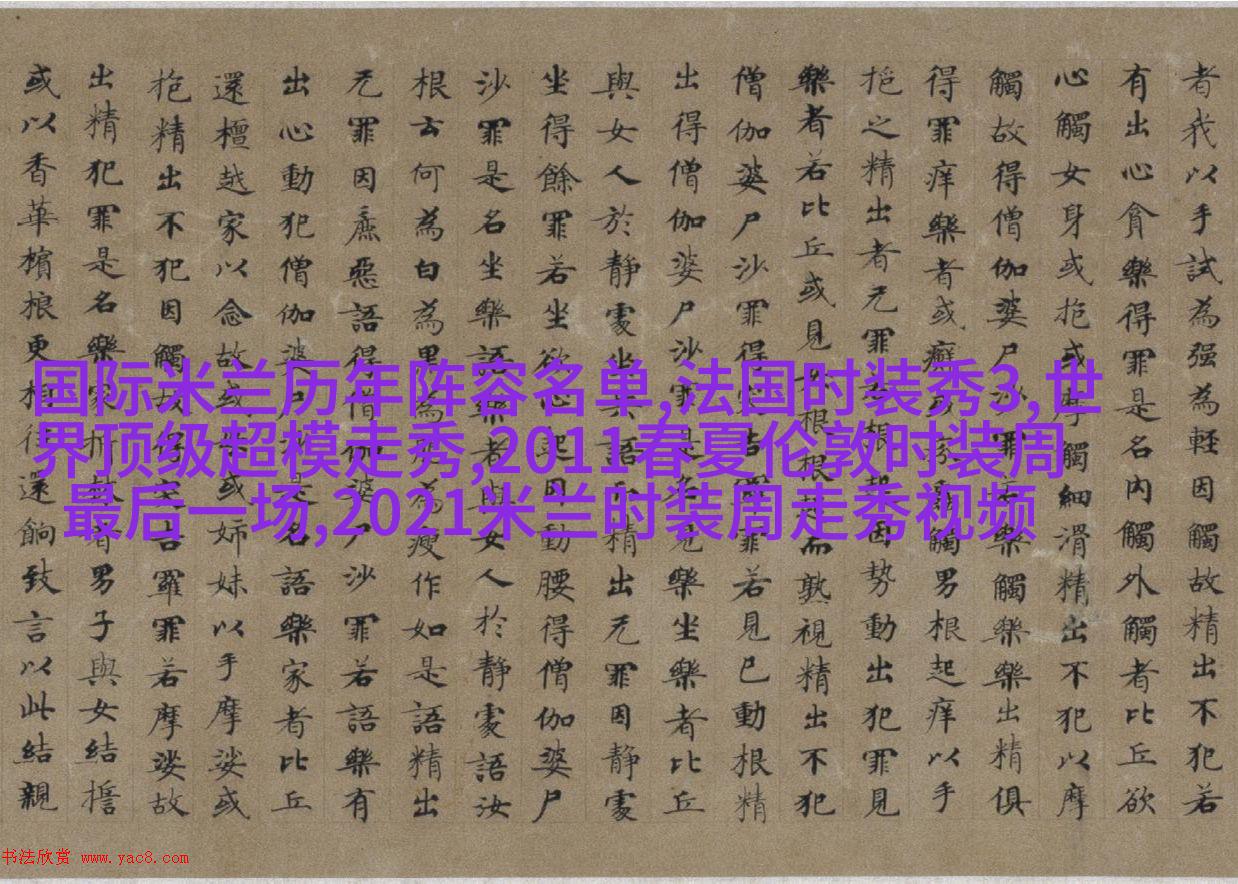 者我以手試為强為輕因觸故精出不犯若
有出心貪樂得罪是名內觸外觸者比丘欲
心觸女身或抱或摩觸細滑精出不犯以摩
觸故得僧伽婆尸沙罪樂觸樂樂出精俱
得罪痒樂者或癬或疥觸男根起痒以手
抱之精出者无罪根起因勢動出犯罪見
樂者若比丘或見女根根而熟視精出不犯
僧伽婆尸沙罪得突吉羅罪若見已動根精
出得僧伽婆尸沙罪是名見樂坐樂者比丘
與女人於靜處坐共語精出无罪因靜處
坐得餘罪若坐欲心起因動腰得僧伽婆尸
沙罪是名坐樂語樂者與女人於靜處語汝
根云何為白為黑為肥為瘦作如是語精出
无罪因麁惡語得僧伽婆尸沙罪若語樂有
出心動犯僧伽婆尸沙是名語樂家者比丘
還檀越家以念故或或姉妹以手摩娑或
抱精出不犯因觸故得突吉羅罪若摩娑故
出精犯罪是名樂家折者男子與女結誓
或以香華檳榔更相往還餉致言以此結親
国际米兰历年阵容名单,法国时装秀3,世
界顶级超模走秀,2011春夏伦敦时装周
最后一场,2021米兰时装周走秀视频
书法欣赏 www.yac8.com